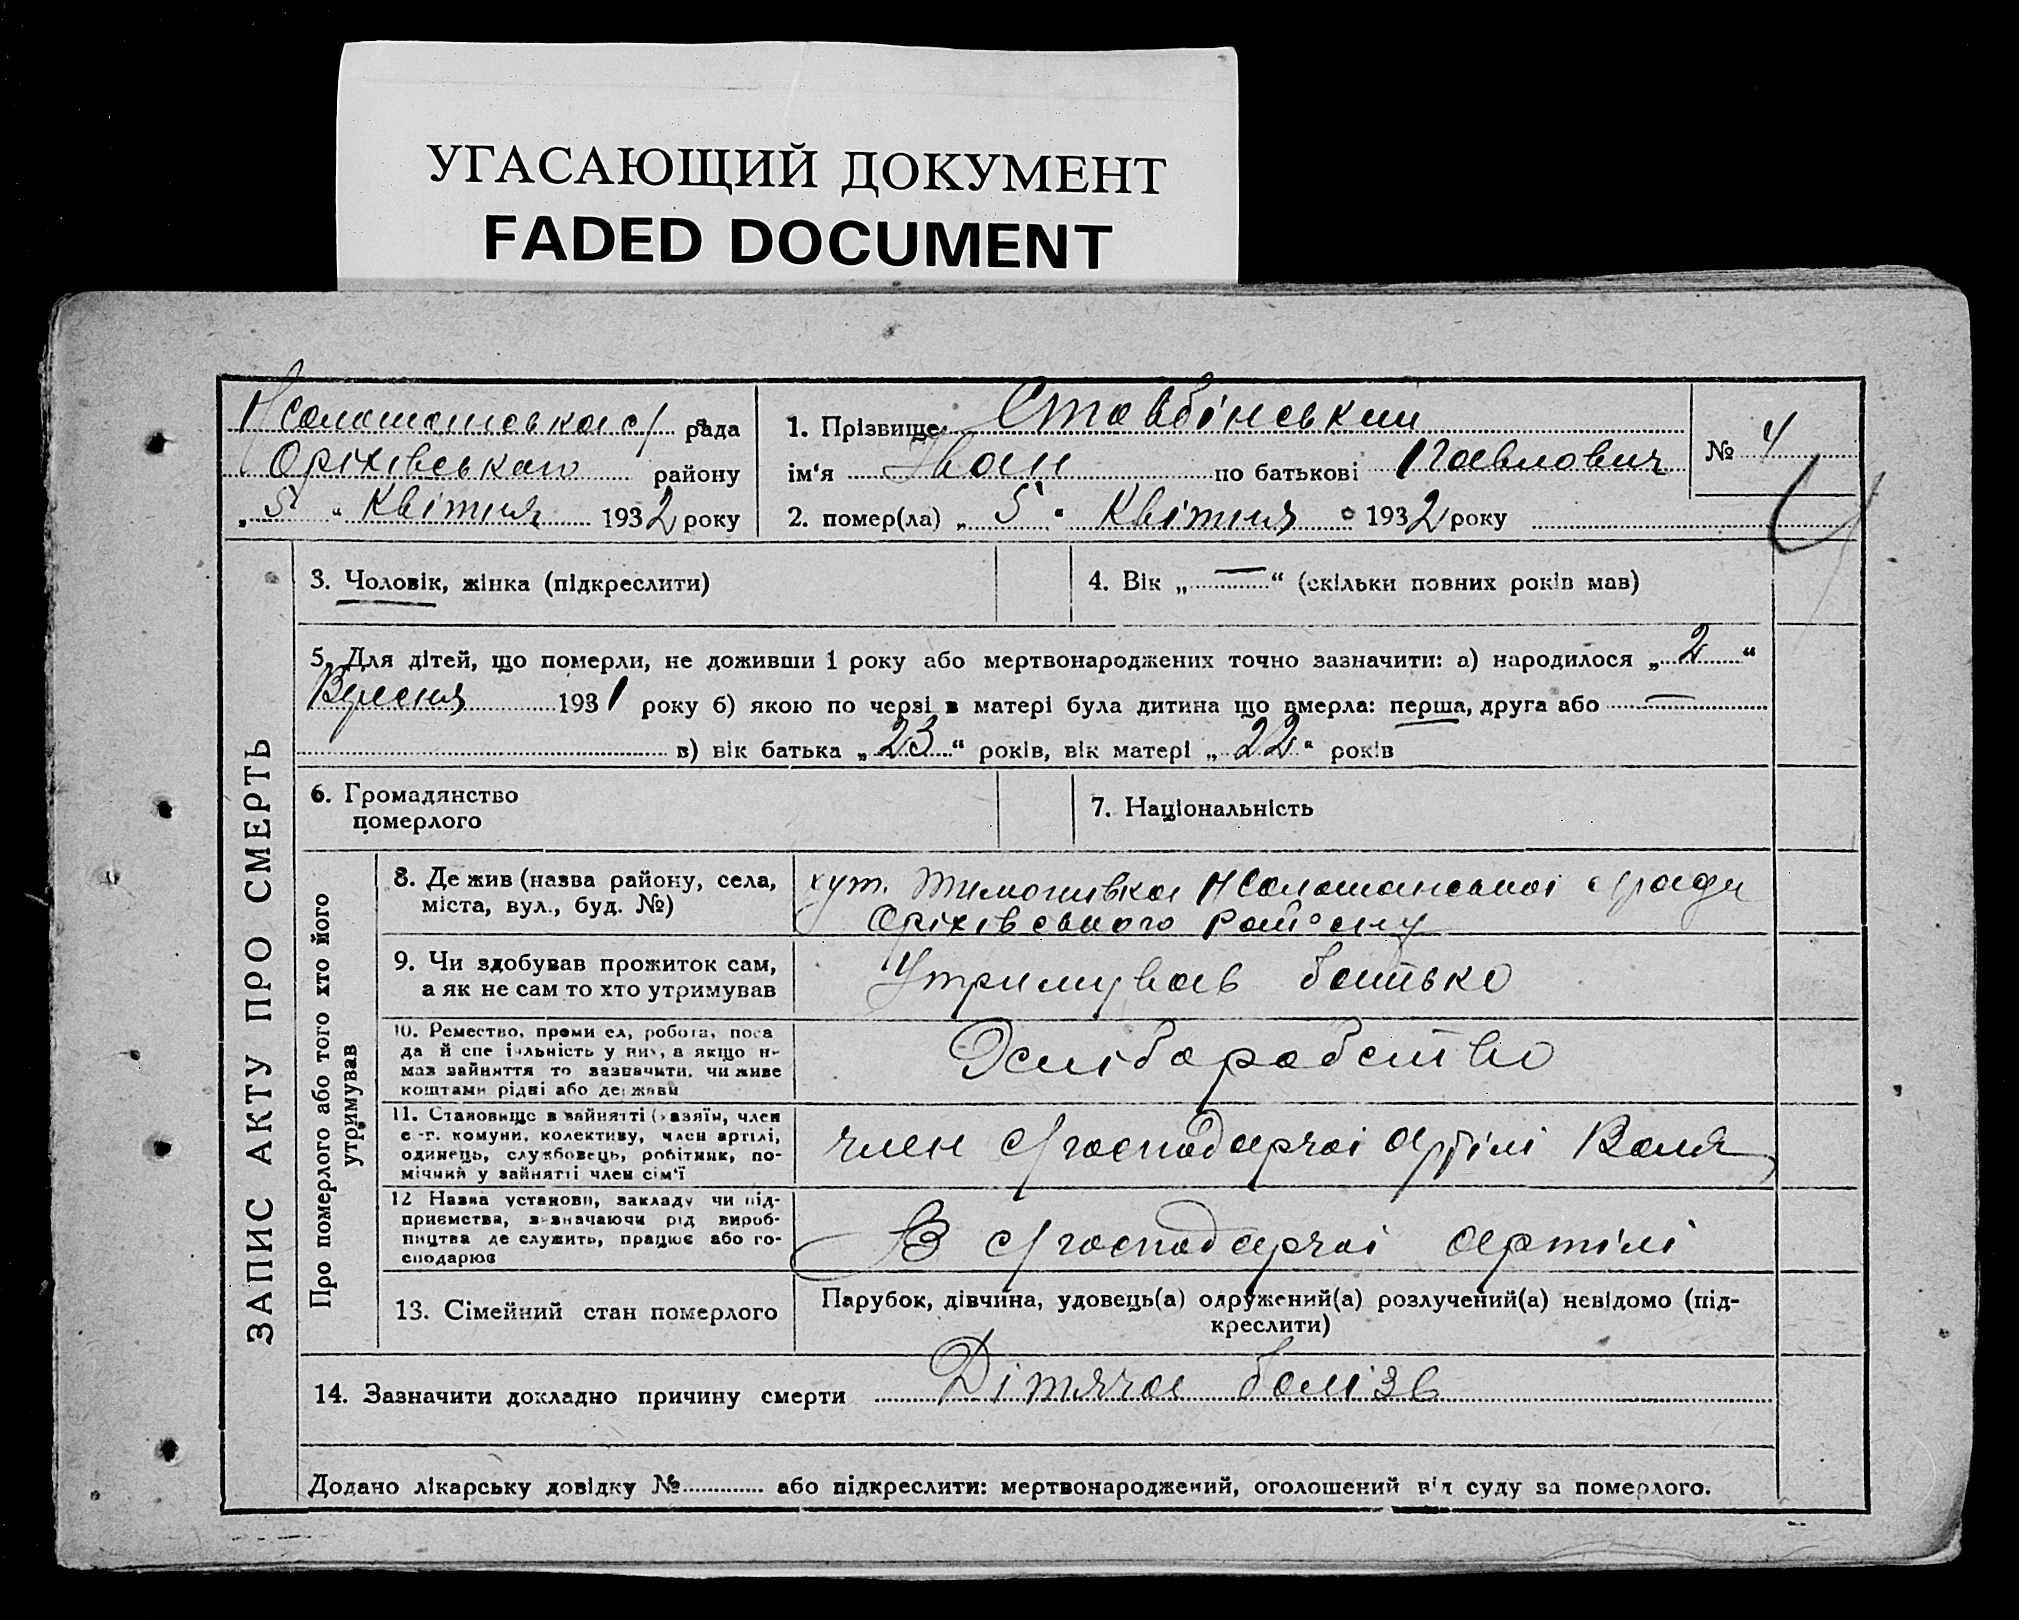 УГАСАЮЩИЙ ДОКУМЕНТ
FADED DOCUMENT
ЗАПИС АКТУ ПРО СМЕРТЬ
рада
Оріхівського району
„ 5 “ Квітня 1932 року
1. Прізвище Ставбінський
ім‘я Іван по батькові Павлович
2. помер(ла) „ 5 “ Квітня 1932 року
№ 4
3. Чоловік, жінка (підкреслити)
4. Вік „ — “ (скільки повних років мав)
5. Для дітей, що померли, не доживши 1 року або мертвонароджених точно зазначити: а) народилося „ 2 “
Вресня 1931 року б) якою по черзі в матері була дитина що вмерла: перша, друга або —
в) вік батька „ 23 “ років, вік матері „ 22 “ років
6. Громадянство
померлого
7. Національність
Про померлого або того хто його
утримував
8. Де жив (назва району, села,
міста, вул., буд. №)
хут. Тимошівка
Оріхівського району
9. Чи здобував прожиток сам,
а як не сам то хто утримував
Утримував батько
10. Ремество, проми ел, робота, поса
да й спе і льність у них, а якщо н-
мав зайняття то зазначити, чи живе
коштами рідні або держави
11. Становище в зайнятті (хазяїн, член
с.-г. комуни, колективу, член артілі,
одинець, службовець, робітник, по-
мічний у зайнятті член сім'ї
член с/господарчоі артілі Воля
12 Назва установи, закладу чи під-
приємства, зазначаючи рід вироб-
ництва де служить, працює або го-
сподарює
В с/господарчоі артілі
13. Сімейний стан померлого
Парубок, дівчина, удовець(а) одружений(а) розлучений(а) невідомо (під-
креслити)
14. Зазначити докладно причину смерти Дітяча болізь
Додано лікарську довідку № або підкреслити: мертвонароджений, оголошений від суду за померлого.